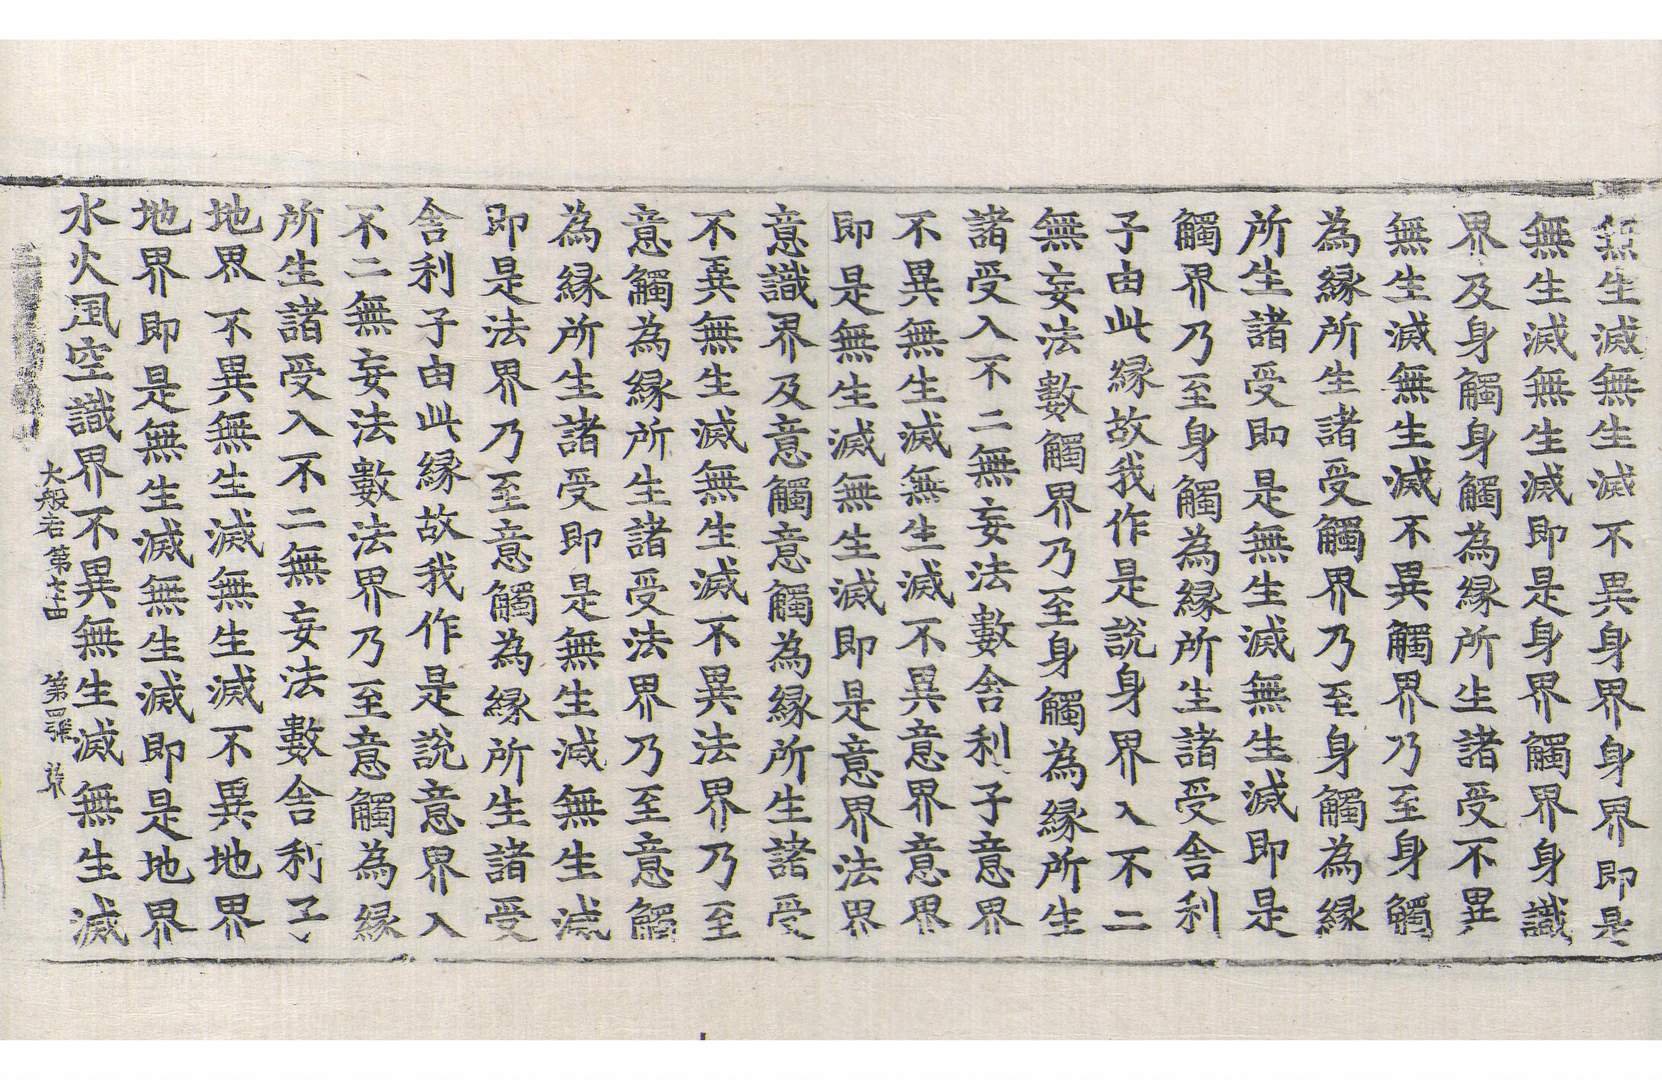 無生滅無生滅不異身界身界即是
無生滅無生滅即是身界觸界身識
界及身觸身觸為縁所生諸受不異
無生滅無生滅不異觸界乃至身觸
為縁所生諸受觸界乃至身觸為縁
所生諸受即是無生滅無生滅即是
觸界乃至身觸為縁所生諸受舎利
子由此縁故我作是説身界入不二
無妄法數觸界乃至身觸為縁所生
諸受入不二無妄法數舎利子意界
不異無生滅無生滅不異意界意界
即是無生滅無生滅即是意界法界
意識界及意觸意觸為縁所生諸受
不異無生滅無生滅不異法界乃至
意觸為縁所生諸受法界乃至意觸
為縁所生諸受即是無生滅無生滅
即是法界乃至意觸為縁所生諸受
舎利子由此縁故我作是説意界入
不二無妄法數法界乃至意觸為縁
所生諸受入不二無妄法數舎利子
地界不異無生滅無生滅不異地界
地界即是無生滅無生滅即是地界
水火風空識界不異無生滅無生滅
大般若第七十四 第四張